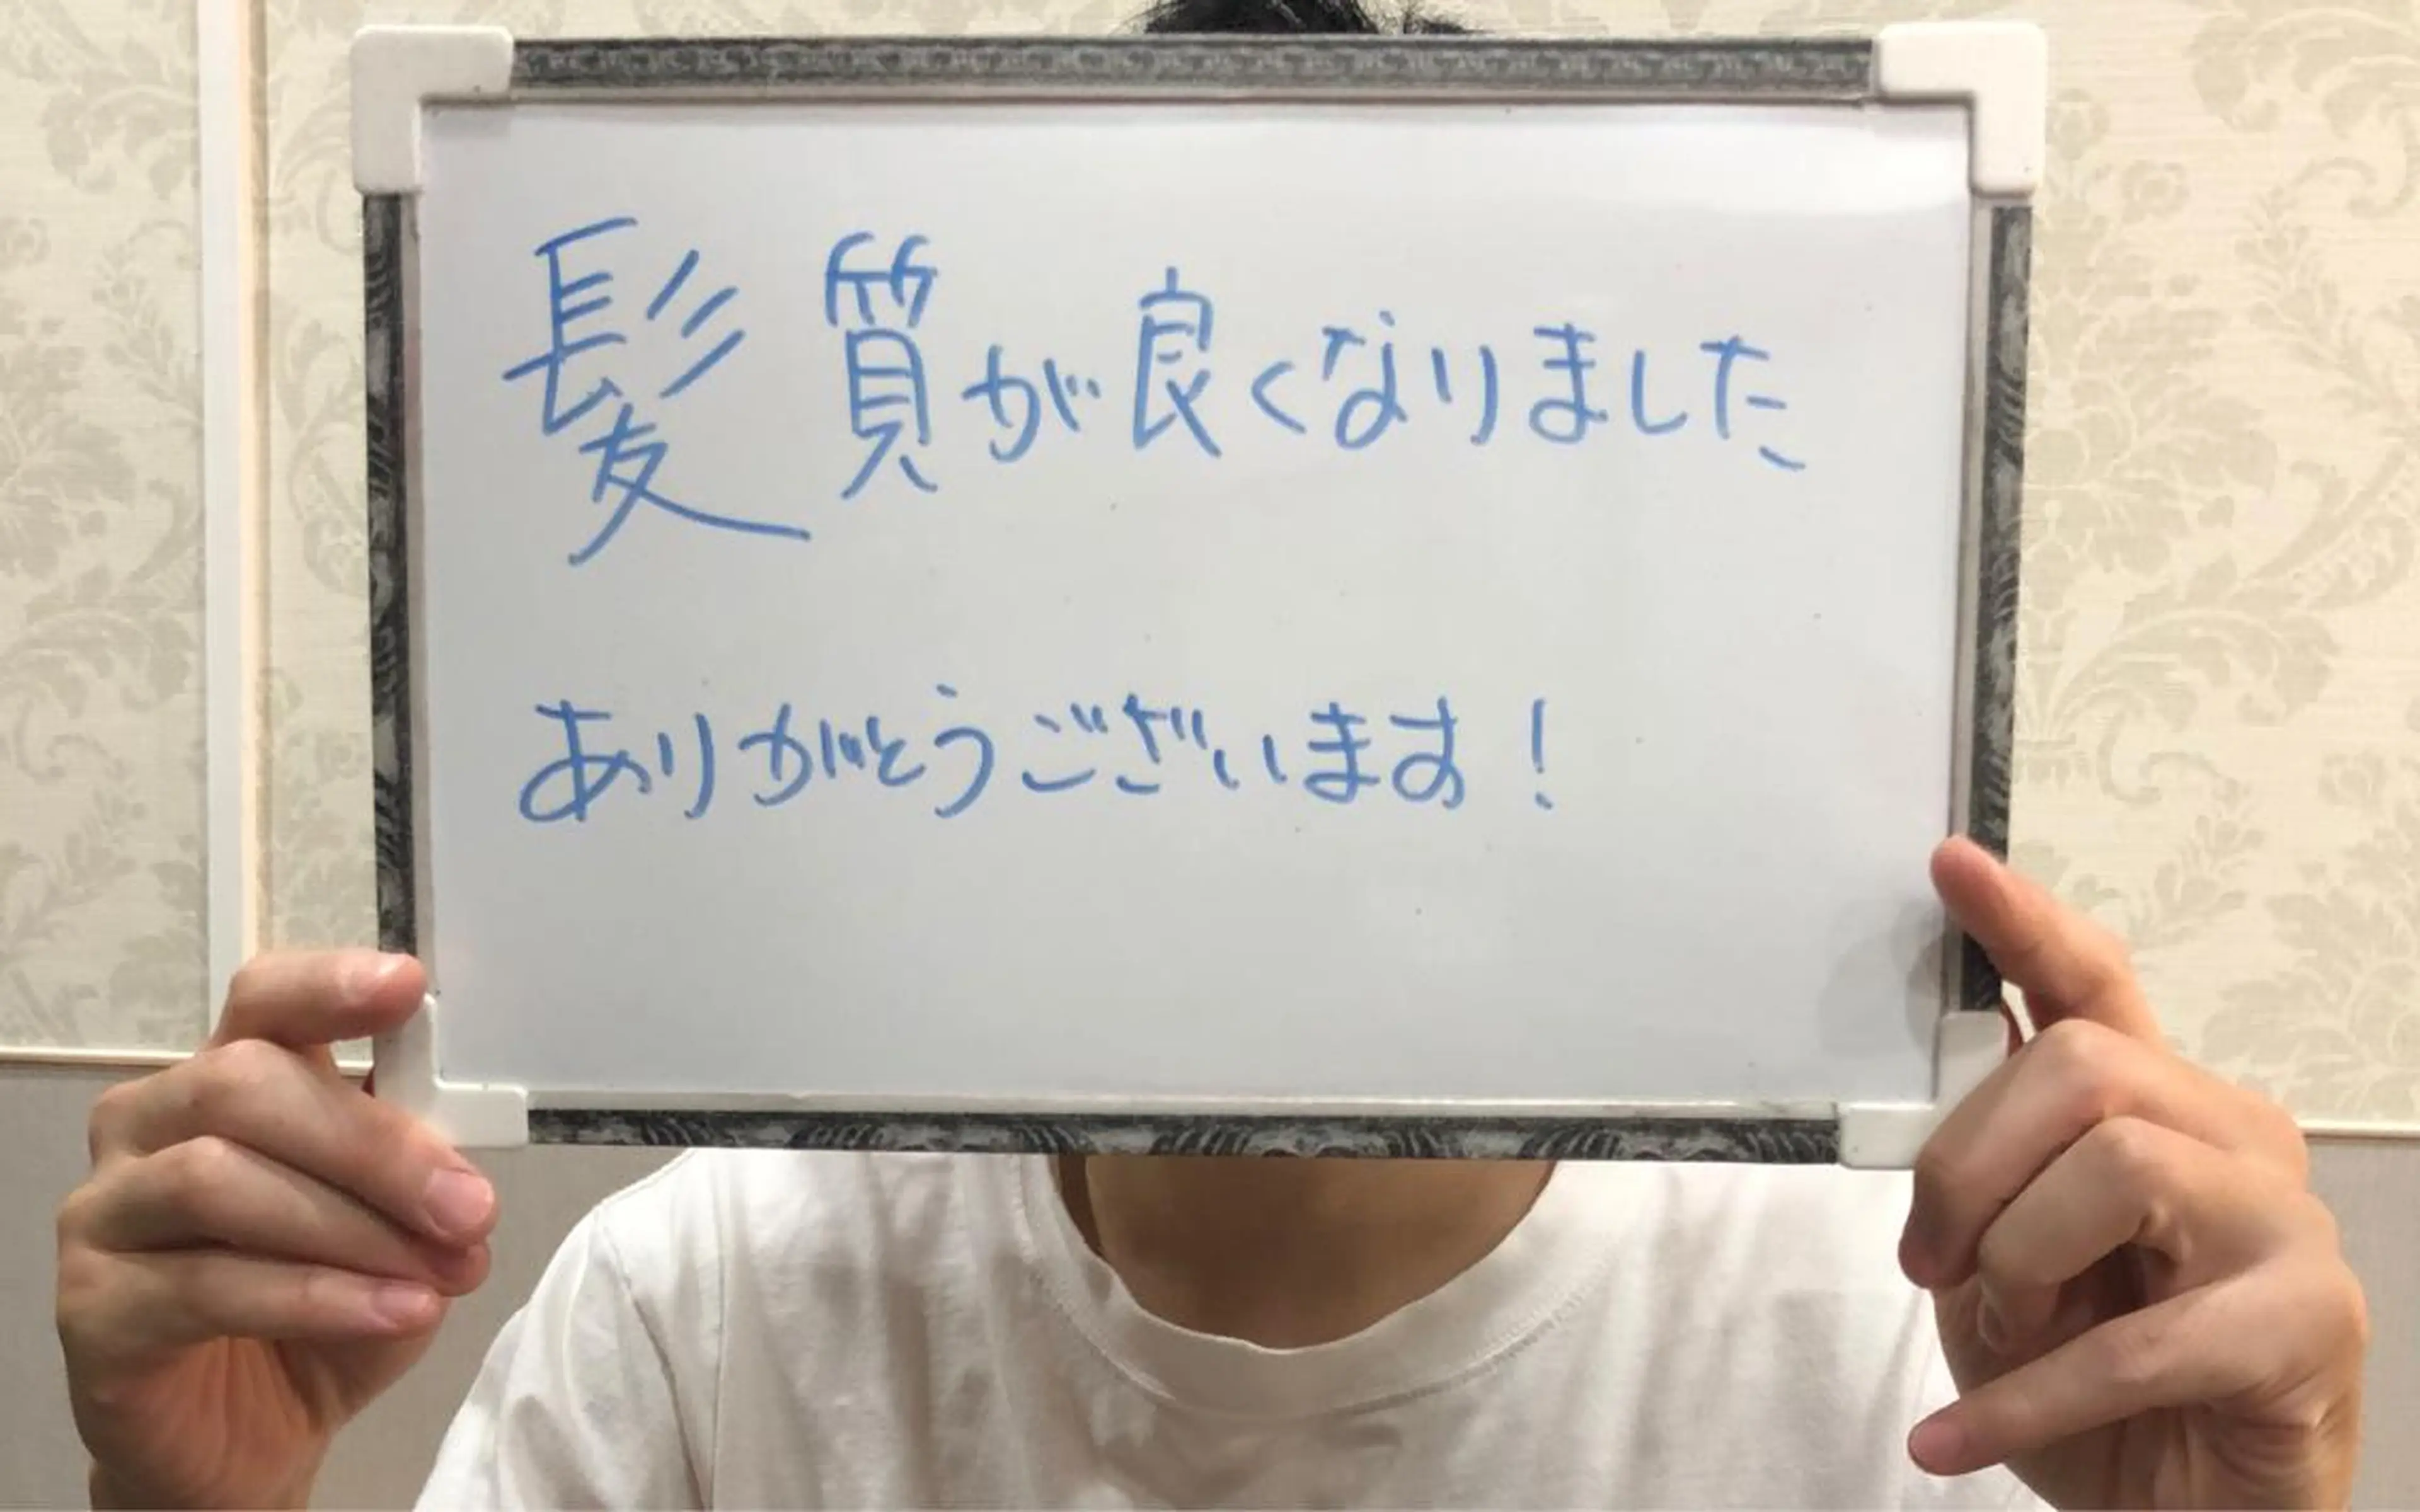 髪質が良くなりました
ありがとうございます!